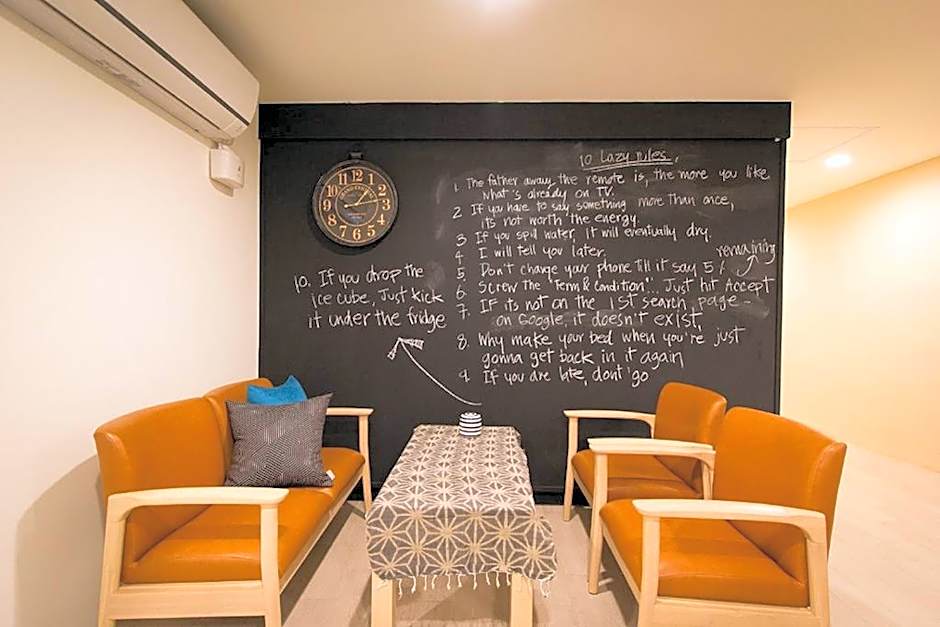 10 Lazy rules.
1. The father away, the remote is, the more you like
what's already on TV.
2. If you have to say something more than once,
its not worth the energy.
3. If you spill water, it will eventually dry.
4. I will tell you later.
remaining
5. Don't change your phone till it say 5%
6. Screw the "Term & Condition"... Just hit Accept
7. If its not on the 1st search page -
on Google, it doesn't exist,
8. Why make your bed when you're just
gonna get back in it again
9. If you are late, dont go
10. If you drop the
ice cube, Just kick
it under the fridge
12
1
2
3
4
5
6
7
8
9
10
11